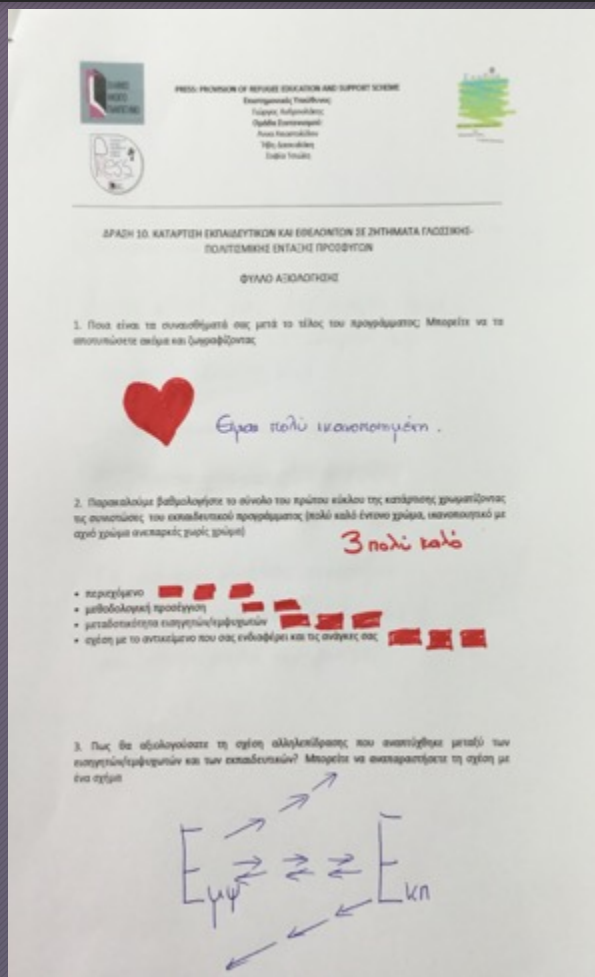 PRESS: PROVISION OF REFUGEE EDUCATION AND SUPPORT SCHEME
Επιστημονικός Υπεύθυνος
Γιώργος Ανδρουλάκης
Ομάδα Συντονισμού
Σοφία Τσιώλη
PRESS
ΔΡΑΣΗ 10. ΚΑΤΑΡΤΙΣΗ ΕΚΠΑΙΔΕΥΤΙΚΩΝ ΚΑΙ ΕΘΕΛΟΝΤΩΝ ΣΕ ΖΗΤΗΜΑΤΑ ΓΛΩΣΣΙΚΗΣ-
ΠΟΛΙΤΙΣΜΙΚΗΣ ΕΝΤΑΞΗΣ ΠΡΟΣΦΥΓΩΝ
ΦΥΛΛΟ ΑΞΙΟΛΟΓΗΣΗΣ
1. Ποια είναι τα συναισθήματά σας μετά το τέλος του προγράμματος; Μπορείτε να τα
αποτυπώσετε ακόμα και ζωγραφίζοντας
Είμαι πολύ ικανοποιημένη.
2. Παρακαλούμε βαθμολογήστε το σύνολο του πρώτου κύκλου της κατάρτισης χρωματίζοντας
τις συνιστώσες του εκπαιδευτικού προγράμματος (πολύ καλό έντονο χρώμα, ικανοποιητικό με
αχνό χρώμα ανεπαρκές χωρίς χρώμα)
3 πολύ καλό
• περιεχόμενο
• μεθοδολογική προσέγγιση
• μεταδοτικότητα εισηγητών/εμψυχωτών
• σχέση με το αντικείμενο που σας ενδιαφέρει και τις ανάγκες σας
3. Πως θα αξιολογούσατε τη σχέση αλληλεπίδρασης που αναπτύχθηκε μεταξύ των
εισηγητών/εμψυχωτών και των εκπαιδευτικών? Μπορείτε να αναπαραστήσετε τη σχέση με
ένα σχήμα
Εμψ Εκπ